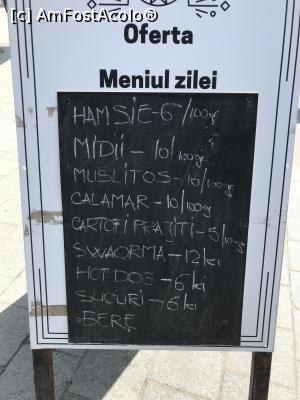 [c] AmFostAcolo®
Oferta
Meniul zilei
HAMSIE-6/100gr
MIDII - 10/100gr
MUSLITOS-10/100gr
CALAMAR-10/100g
CARTOFI PRAJITI-5/100g
SWAORMA-12ki
HOT DOG-6ki
SUCURI-6ki
BERE